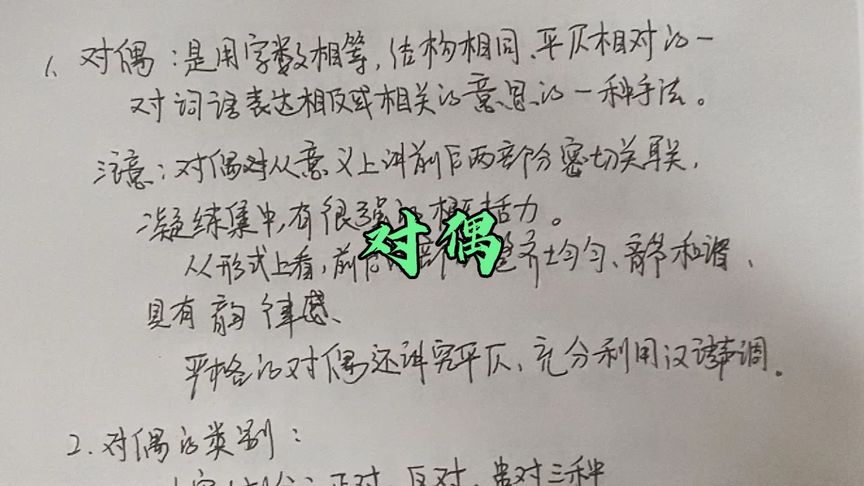 1、对偶：是用字数相等，结构相同、平仄相对的一
对词语表达相反或相关的意思的一种手法。
注意：对偶对从意义上讲前后两部分密切关联，
凝练集中，有很强的概括力。
对偶
从形式上看，前后两部分整齐均匀、音节和谐、
具有韵律感、
严格的对偶还讲究平仄、充分利用汉语声调。
2.对偶的类别：
正对、反对、串对三种